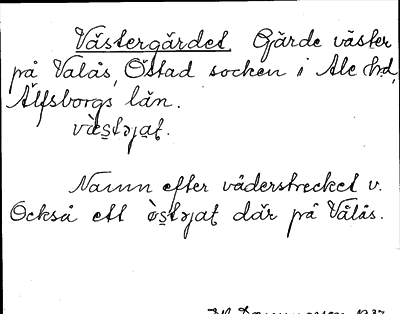 Västergärdet. Gärde väster
på Valås, Östad socken i Ale hd,
Älfsborgs län.
Namn efter väderstrecket v.
Också ett där på Vålås.